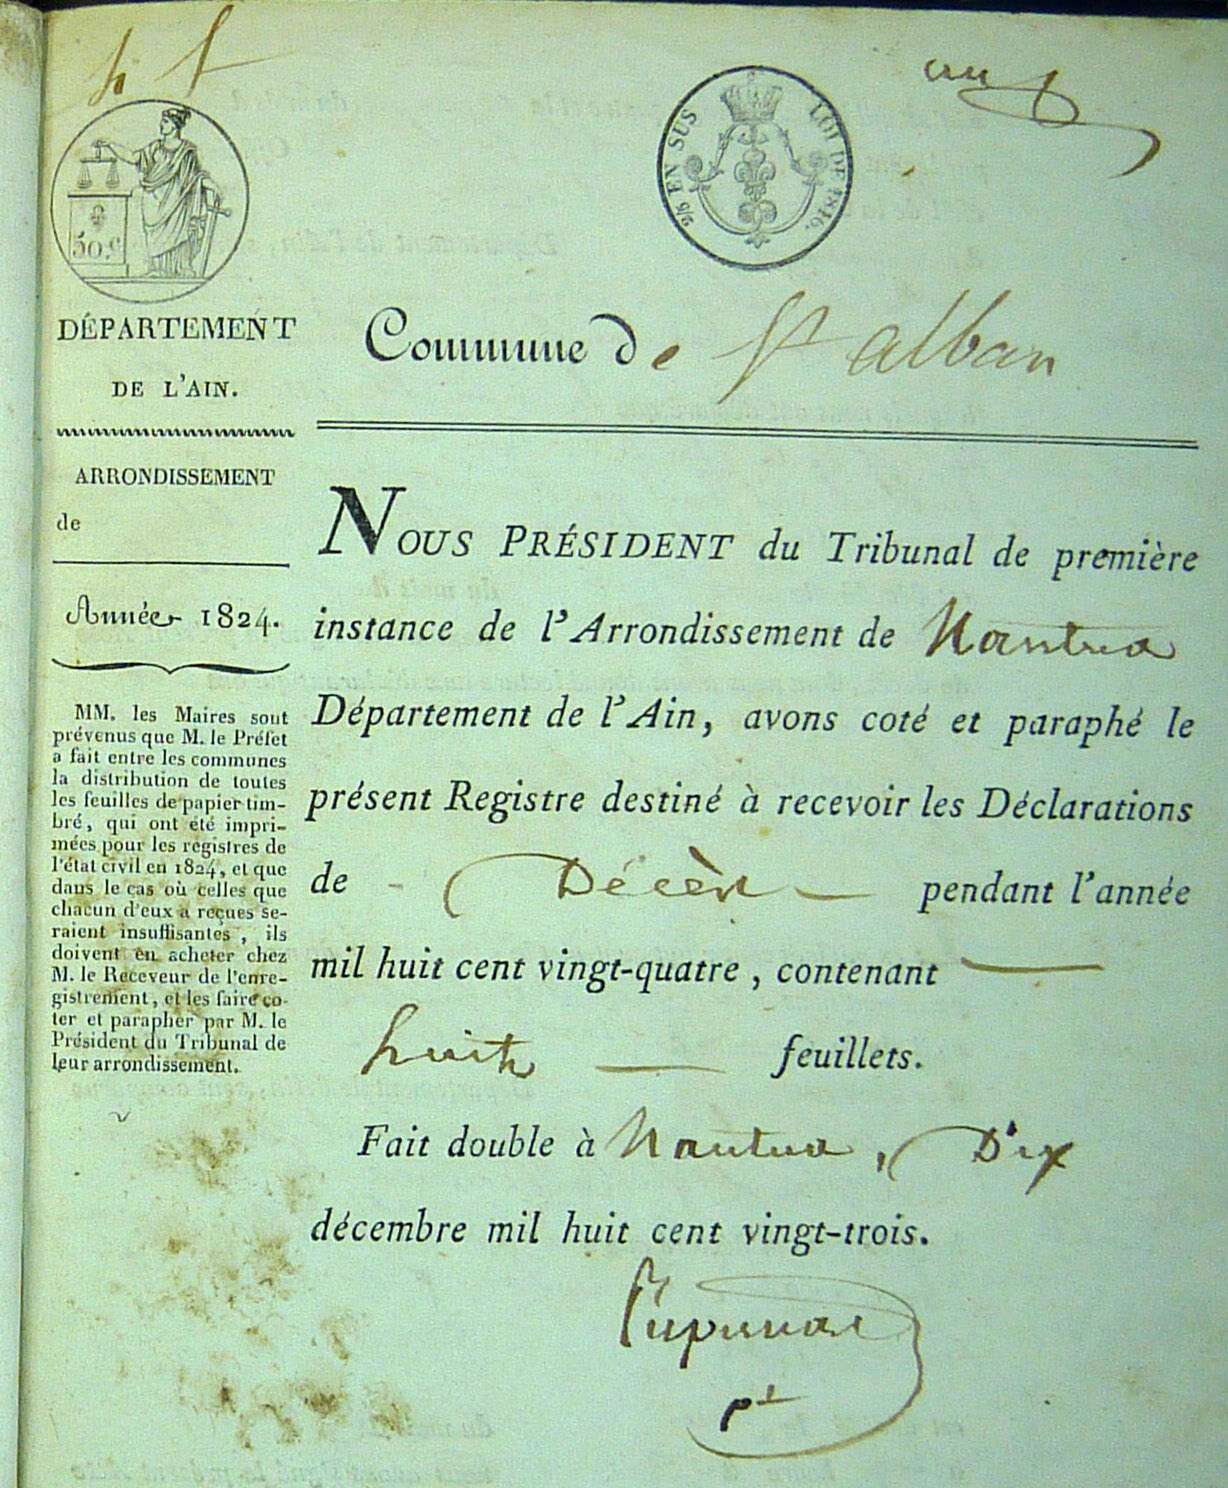 50 c
2/5 EN SUS
LOI DE 1816.
DÉPARTEMENT
DE L'AIN.
ARRONDISSEMENT
de
Année 1824.
MM. les Maires sont
prévenus que M. le Préfet
a fait entre les communes
la distribution de toutes
les feuilles de papier tim-
bré, qui ont été impri-
mées pour les registres de
l'état civil en 1824, et que
dans le cas où celles que
chacun d'eux a reçues se-
raient insuffisantes, ils
doivent en acheter chez
M. le Receveur de l'enre-
gistrement, et les faire co-
ter et parapher par M. le
Président du Tribunal de
leur arrondissement.
Commune de St alban
NOUS PRÉSIDENT du Tribunal de première
instance de l'Arrondissement de Nantua
Département de l'Ain, avons coté et paraphé le
présent Registre destiné à recevoir les Déclarations
de Décès pendant l'année
mil huit cent vingt-quatre, contenant
huit feuillets.
Fait double à Nantua, Dix
décembre mil huit cent vingt-trois.
pt